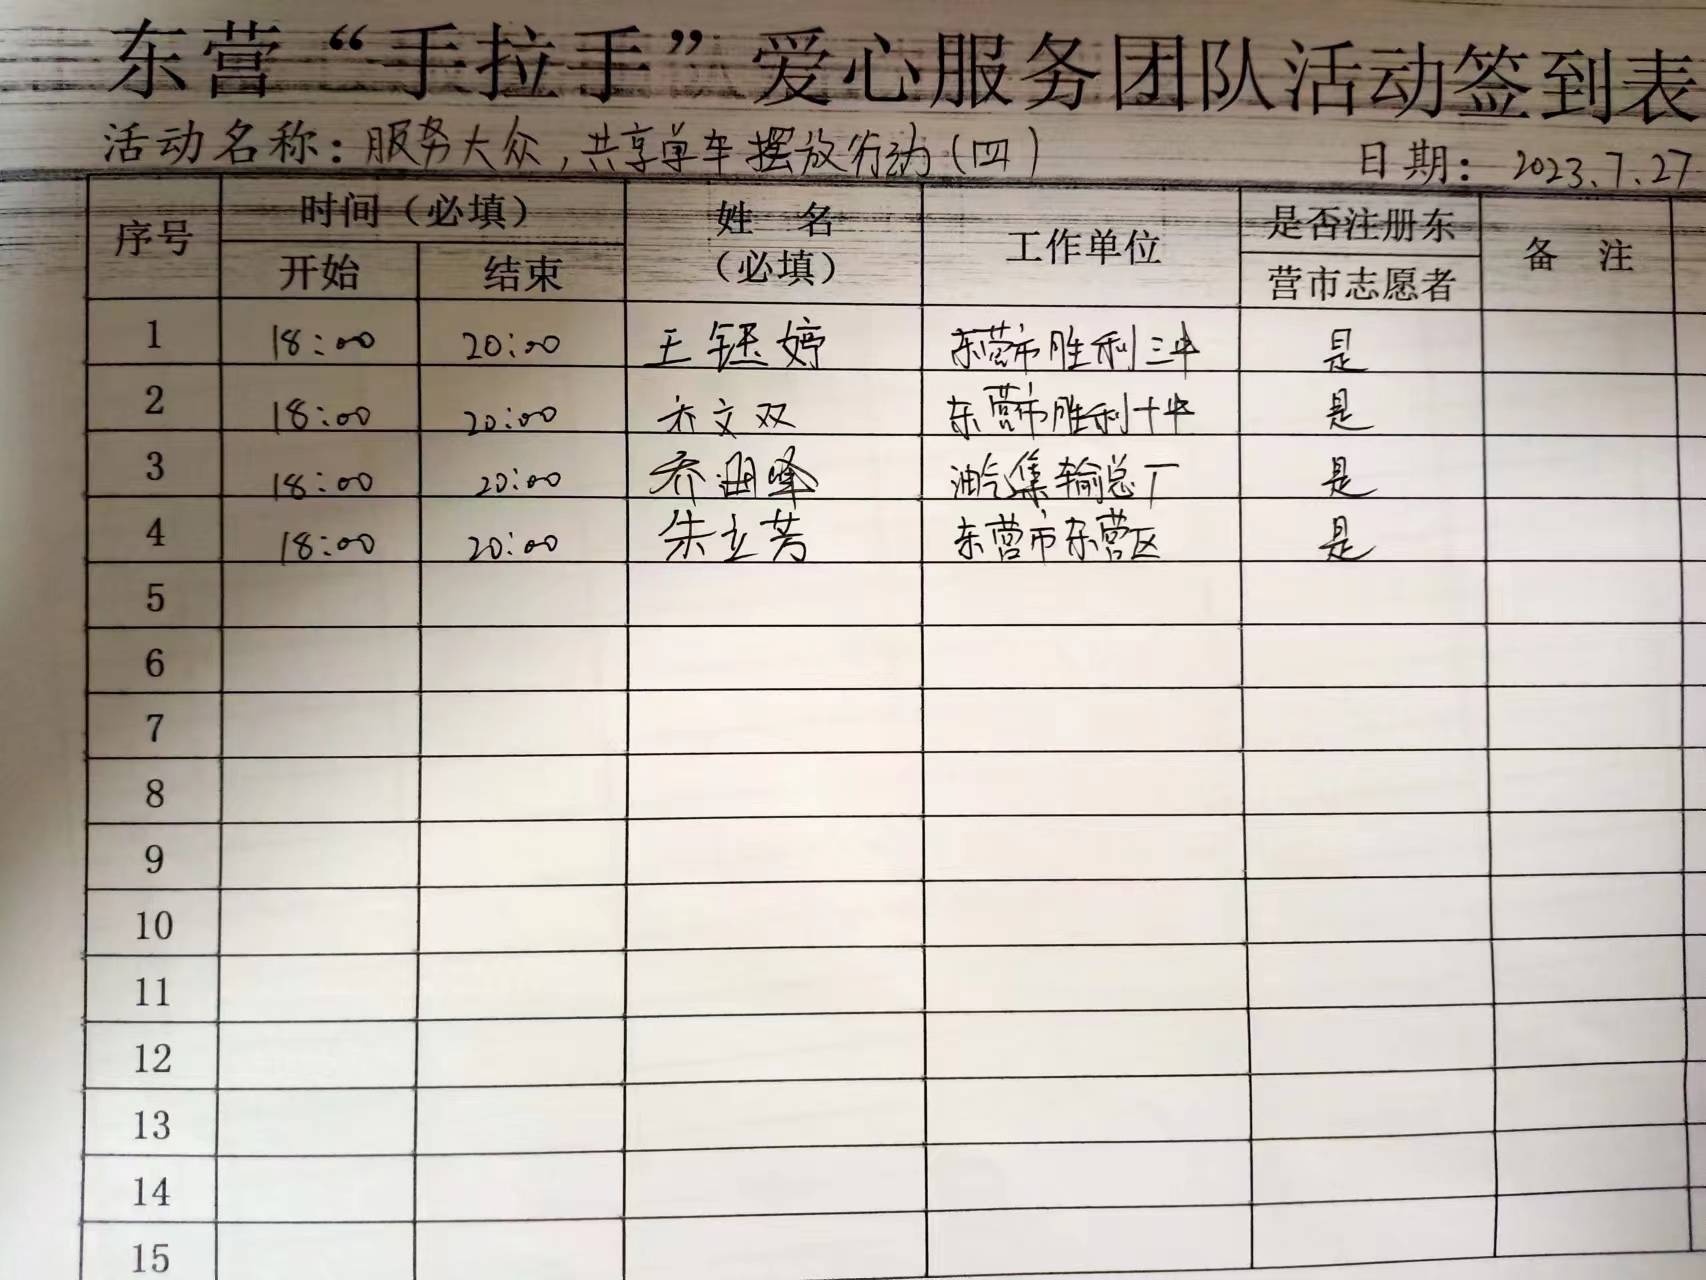 东营“手拉手”爱心服务团队活动签到表
活动名称：服务大众，共享单车摆放行动（四） 日期：2023.7.27
序号 时间（必填） 姓 名（必填） 工作单位 是否注册东营市志愿者 备 注
开始 结束
1 18:00 20:00 王钰婷 东营市胜利三中 是
2 18:00 20:00 乔文双 东营市胜利十中 是
3 18:00 20:00 乔 峰 油气集输总厂 是
4 18:00 20:00 朱立芳 东营市东营区 是
5
6
7
8
9
10
11
12
13
14
15